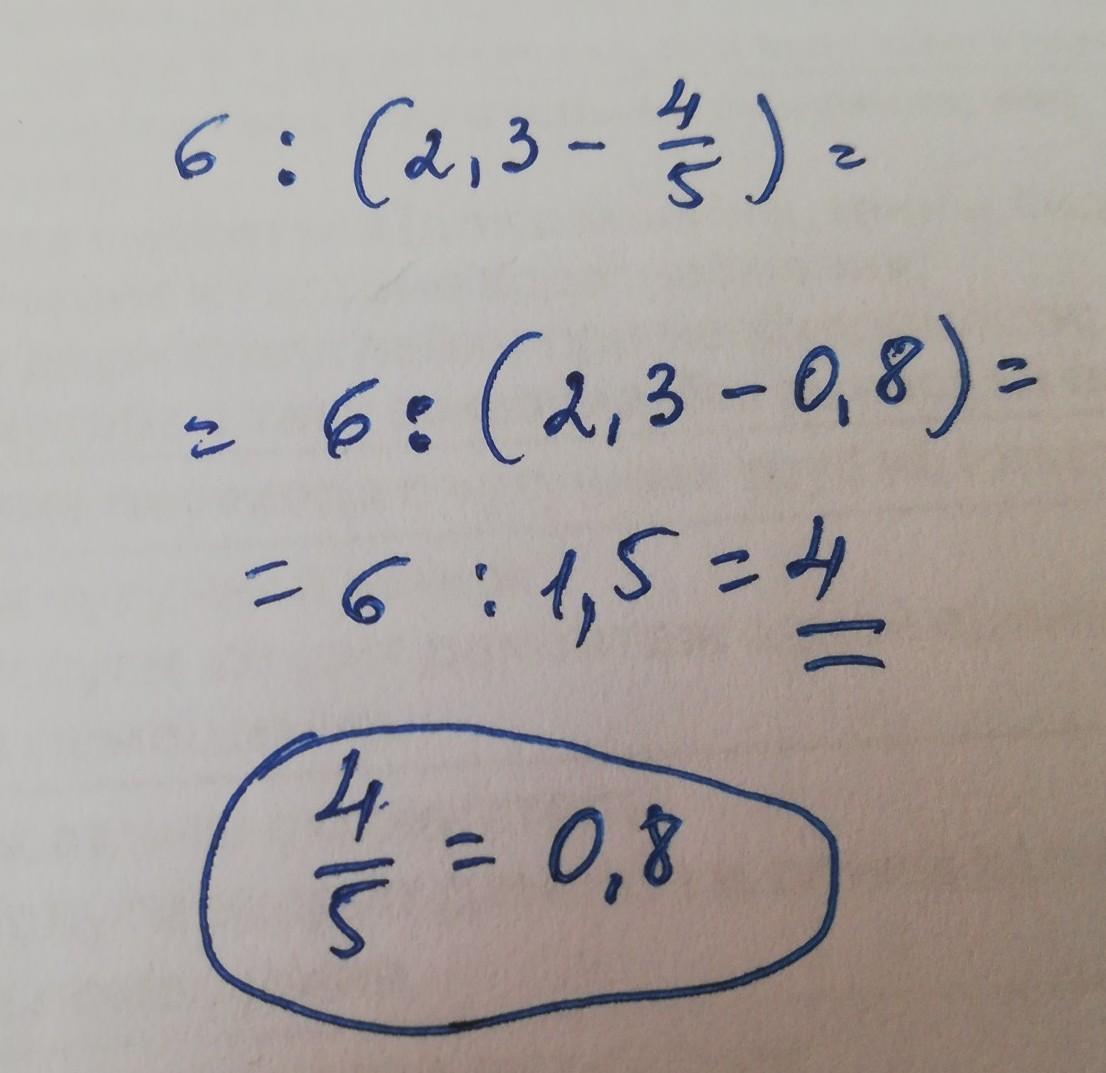 6 : (2,3 - 4/5) =
= 6 : (2,3 - 0,8) =
= 6 : 1,5 = 4
4/5 = 0,8